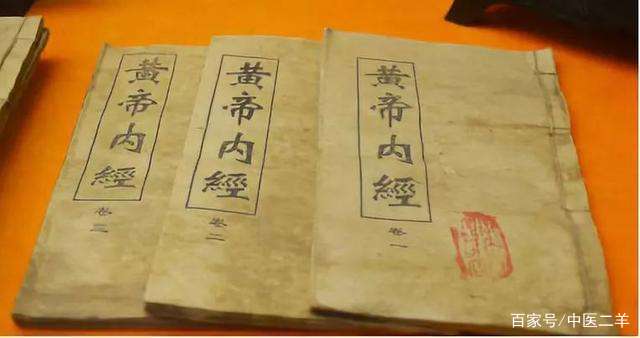 黄帝内經
卷三
黄帝内經
卷二
黄帝内經
卷一
百家号/中医二羊